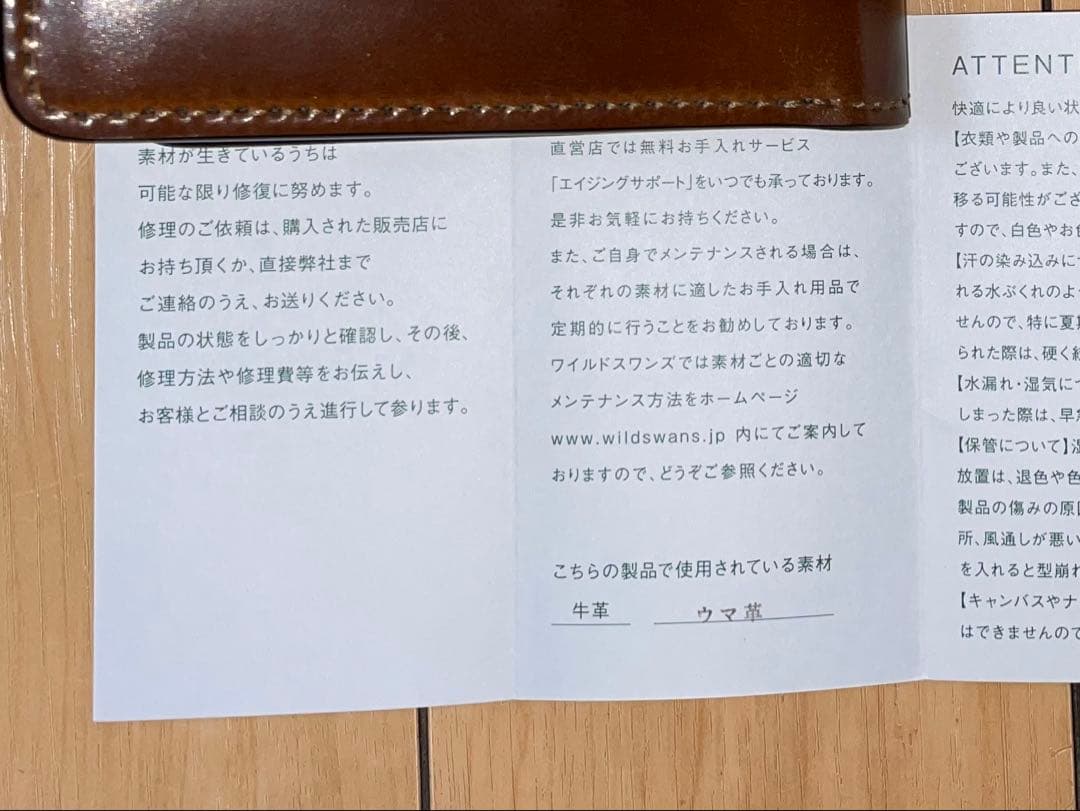 素材が生きているうちは
可能な限り修復に努めます。
修理のご依頼は、購入された販売店に
お持ち頂くか、直接弊社まで
ご連絡のうえ、お送りください。
製品の状態をしっかりと確認し、その後、
修理方法や修理費等をお伝えし、
お客様とご相談のうえ進行して参ります。
直営店では無料お手入れサービス
「エイジングサポート」をいつでも承っております。
是非お気軽にお持ちください。
また、ご自身でメンテナンスされる場合は、
それぞれの素材に適したお手入れ用品で
定期的に行うことをお勧めしております。
ワイルドスワンズでは素材ごとの適切な
メンテナンス方法をホームページ
www.wildswans.jp 内にてご案内して
おりますので、どうぞご参照ください。
こちらの製品で使用されている素材
牛革 ウマ革
ATTENT
快適により良い状
【衣類や製品への
ございます。また、
移る可能性がござ
すので、白色やお色
【汗の染み込みに
れる水ぶくれのよう
せんので、特に夏
られた際は、硬く絞
【水漏れ・湿気につ
しまった際は、早急
【保管について】湿
放置は、退色や色
製品の傷みの原因
所、風通しが悪い
を入れると型崩れ
【キャンバスやナ
はできませんので